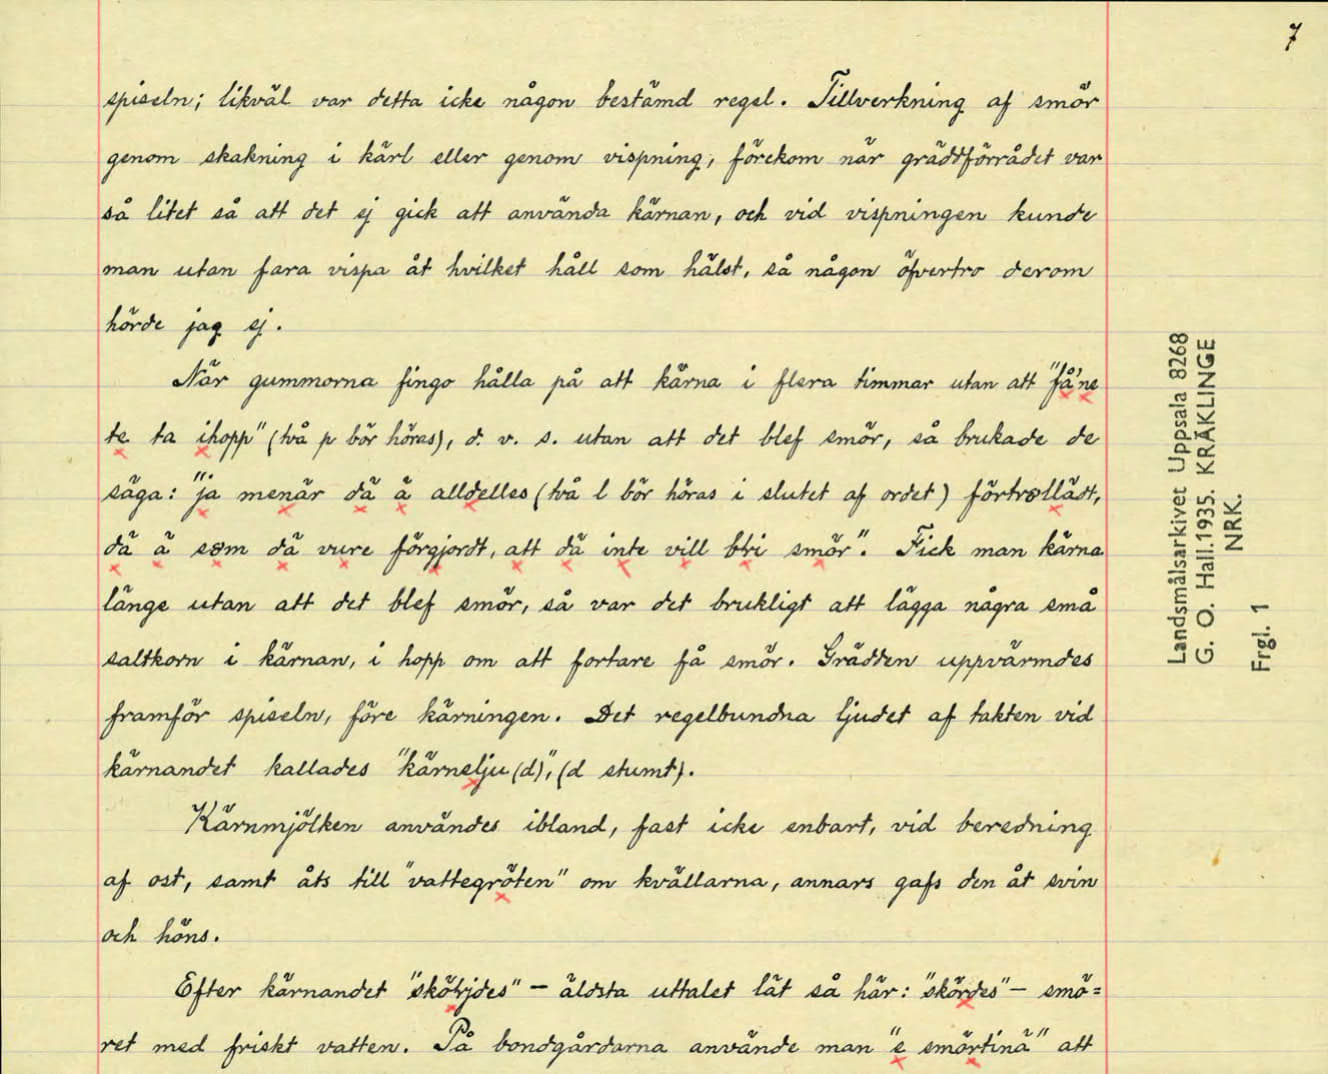 7
spiseln; likväl var detta icke någon bestämd regel. Tillverkning af smör
genom skakning i kärl eller genom vispning, förekom när gräddförrådet var
så litet så att det ej gick att använda kärnan, och vid vispningen kunde
man utan fara vispa åt hvilket håll som hälst, så någon öfvertro derom
hörde jag ej.
När gummorna fingo hålla på att kärna i flera timmar utan att "få'ne
te ta ihopp" (två p bör höras), d. v. s. utan att det blef smör, så brukade de
säga: "ja menär dä ä alldelles (två l bör höras i slutet af ordet) förtrollädt,
dä ä som dä vure förgjordt, att dä inte vill bli smör". Fick man kärna
länge utan att det blef smör, så var det brukligt att lägga några små
saltkorn i kärnan, i hopp om att fortare få smör. Grädden uppvärmdes
framför spiseln, före kärningen. Det regelbundna ljudet af takten vid
kärnandet kallades "kärnelju (d)", (d stumt).
Kärnmjölken användes ibland, fast icke enbart, vid beredning
af ost, samt åts till "vattegröten" om kvällarna, annars gafs den åt svin
och höns.
Efter kärnandet "sköljdes" — äldsta uttalet lät så här: "skördes" — smö=
ret med friskt vatten. På bondgårdarna använde man "e smörtinä" att
Landsmålsarkivet Uppsala 8268
G. O. Hall. 1935. KRÄKLINGE
NRK.
Frgl. 1